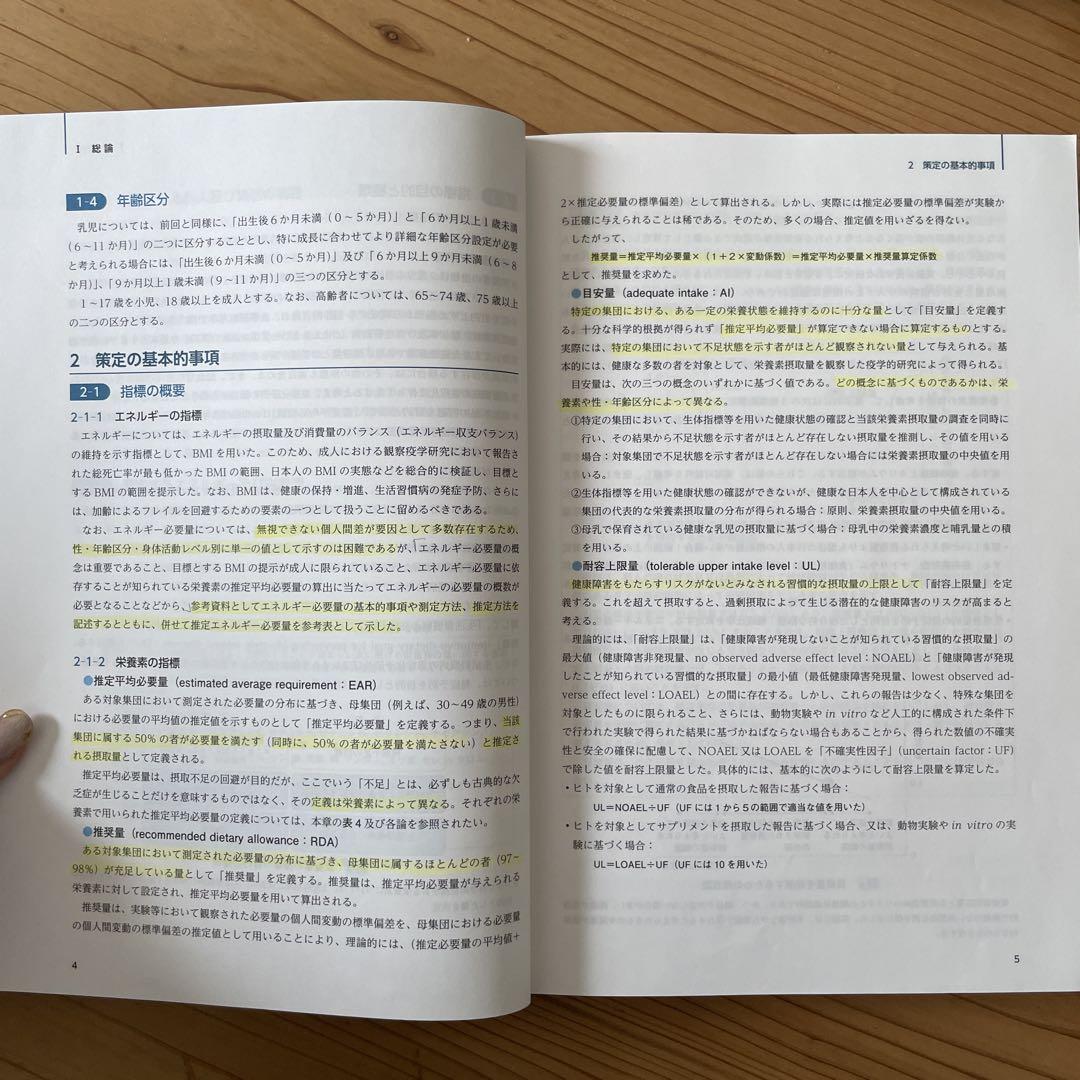 I 総論
1-4 年齢区分
乳児については、前回と同様に、「出生後6か月未満（0～5か月）」と「6か月以上1歳未満
（6～11か月）」の二つに区分することとし、特に成長に合わせてより詳細な年齢区分設定が必要
と考えられる場合には、「出生後6か月未満（0～5か月）」及び「6か月以上9か月未満（6～8
か月）」、「9か月以上1歳未満（9～11か月）」の三つの区分とする。
1～17歳を小児、18歳以上を成人とする。なお、高齢者については、65～74歳、75歳以上
の二つの区分とする。
2 策定の基本的事項
2-1 指標の概要
2-1-1 エネルギーの指標
エネルギーについては、エネルギーの摂取量及び消費量のバランス（エネルギー収支バランス）
の維持を示す指標として、BMIを用いた。このため、成人における観察疫学研究において報告さ
れた総死亡率が最も低かったBMIの範囲、日本人のBMIの実態などを総合的に検証し、目標と
するBMIの範囲を提示した。なお、BMIは、健康の保持・増進、生活習慣病の発症予防、さらに
は、加齢によるフレイルを回避するための要素の一つとして扱うことに留めるべきである。
なお、エネルギー必要量については、無視できない個人間差が要因として多数存在するため、
性・年齢区分・身体活動レベル別に単一の値として示すのは困難であるが、エネルギー必要量の概
念は重要であること、目標とするBMIの提示が成人に限られていること、エネルギー必要量に依
存することが知られている栄養素の推定平均必要量の算出に当たってエネルギーの必要量の概数が
必要となることなどから、参考資料としてエネルギー必要量の基本的事項や測定方法、推定方法を
記述するとともに、併せて推定エネルギー必要量を参考表として示した。
2-1-2 栄養素の指標
●推定平均必要量（estimated average requirement：EAR）
ある対象集団において測定された必要量の分布に基づき、母集団（例えば、30～49歳の男性）
における必要量の平均値の推定値を示すものとして「推定平均必要量」を定義する。つまり、当該
集団に属する50%の者が必要量を満たす（同時に、50%の者が必要量を満たさない）と推定さ
れる摂取量として定義される。
推定平均必要量は、摂取不足の回避が目的だが、ここでいう「不足」とは、必ずしも古典的な欠
乏症が生じることだけを意味するものではなく、その定義は栄養素によって異なる。それぞれの栄
養素で用いられた推定平均必要量の定義については、本章の表4及び各論を参照されたい。
●推奨量（recommended dietary allowance：RDA）
ある対象集団において測定された必要量の分布に基づき、母集団に属するほとんどの者（97～
98%）が充足している量として「推奨量」を定義する。推奨量は、推定平均必要量が与えられる
栄養素に対して設定され、推定平均必要量を用いて算出される。
推奨量は、実験等において観察された必要量の個人間変動の標準偏差を、母集団における必要量
の個人間変動の標準偏差の推定値として用いることにより、理論的には、（推定必要量の平均値＋
4
2 策定の基本的事項
2×推定必要量の標準偏差）として算出される。しかし、実際には推定必要量の標準偏差が実験か
ら正確に与えられることは稀である。そのため、多くの場合、推定値を用いざるを得ない。
したがって、
推奨量＝推定平均必要量×（1＋2×変動係数）＝推定平均必要量×推奨量算定係数
として、推奨量を求めた。
●目安量（adequate intake：AI）
特定の集団における、ある一定の栄養状態を維持するのに十分な量として「目安量」を定義す
る。十分な科学的根拠が得られず「推定平均必要量」が算定できない場合に算定するものとする。
実際には、特定の集団において不足状態を示す者がほとんど観察されない量として与えられる。基
本的には、健康な多数の者を対象として、栄養素摂取量を観察した疫学的研究によって得られる。
目安量は、次の三つの概念のいずれかに基づく値である。どの概念に基づくものであるかは、栄
養素や性・年齢区分によって異なる。
①特定の集団において、生体指標等を用いた健康状態の確認と当該栄養素摂取量の調査を同時に
行い、その結果から不足状態を示す者がほとんど存在しない摂取量を推測し、その値を用いる
場合：対象集団で不足状態を示す者がほとんど存在しない場合には栄養素摂取量の中央値を用
いる。
②生体指標等を用いた健康状態の確認ができないが、健康な日本人を中心として構成されている
集団の代表的な栄養素摂取量の分布が得られる場合：原則、栄養素摂取量の中央値を用いる。
③母乳で保育されている健康な乳児の摂取量に基づく場合：母乳中の栄養素濃度と哺乳量との積
を用いる。
●耐容上限量（tolerable upper intake level：UL）
健康障害をもたらすリスクがないとみなされる習慣的な摂取量の上限として「耐容上限量」を定
義する。これを超えて摂取すると、過剰摂取によって生じる潜在的な健康障害のリスクが高まると
考える。
理論的には、「耐容上限量」は、「健康障害が発現しないことが知られている習慣的な摂取量」の
最大値（健康障害非発現量、no observed adverse effect level：NOAEL）と「健康障害が発現
したことが知られている習慣的な摂取量」の最小値（最低健康障害発現量、lowest observed ad-
verse effect level：LOAEL）との間に存在する。しかし、これらの報告は少なく、特殊な集団を
対象としたものに限られること、さらには、動物実験や in vitro など人工的に構成された条件下
で行われた実験で得られた結果に基づかねばならない場合もあることから、得られた数値の不確実
性と安全の確保に配慮して、NOAEL又はLOAELを「不確実性因子」（uncertain factor：UF）
で除した値を耐容上限量とした。具体的には、基本的に次のようにして耐容上限量を算定した。
・ヒトを対象として通常の食品を摂取した報告に基づく場合：
UL＝NOAEL÷UF（UFには1から5の範囲で適当な値を用いた）
・ヒトを対象としてサプリメントを摂取した報告に基づく場合、又は、動物実験や in vitro の実
験に基づく場合：
UL＝LOAEL÷UF（UFには10を用いた）
5